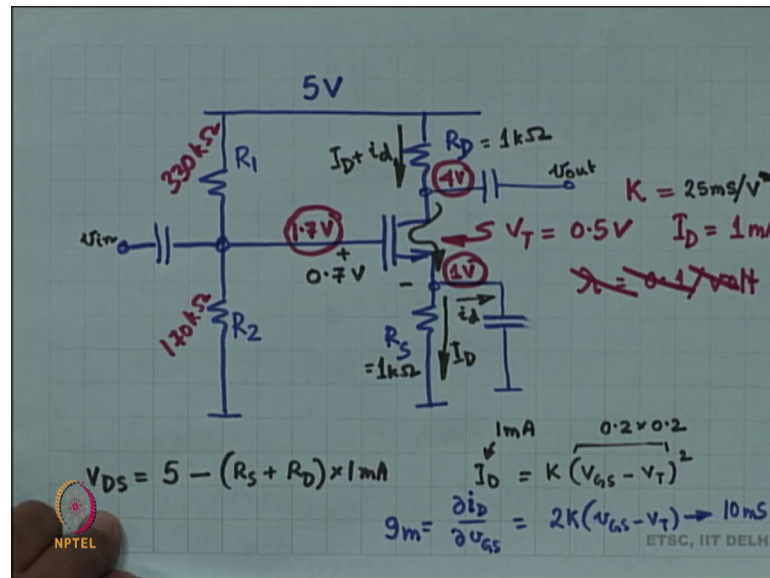 5V
330kΩ
R1
ID + id
RD = 1kΩ
4V
vout
K = 25ms/V
vin
1.7V
VT = 0.5V
ID = 1mA
+
0.7V
-
1V
λ = 0.1/volt
170kΩ
R2
id
RS
= 1kΩ
ID
1mA
0.2 × 0.2
VDS = 5 - (RS + RD) × 1mA
ID = K (VGS - VT)²
gm = ∂iD/∂vGS = 2K(vGS - VT) → 10ms
NPTEL
ETSC, IIT DELH